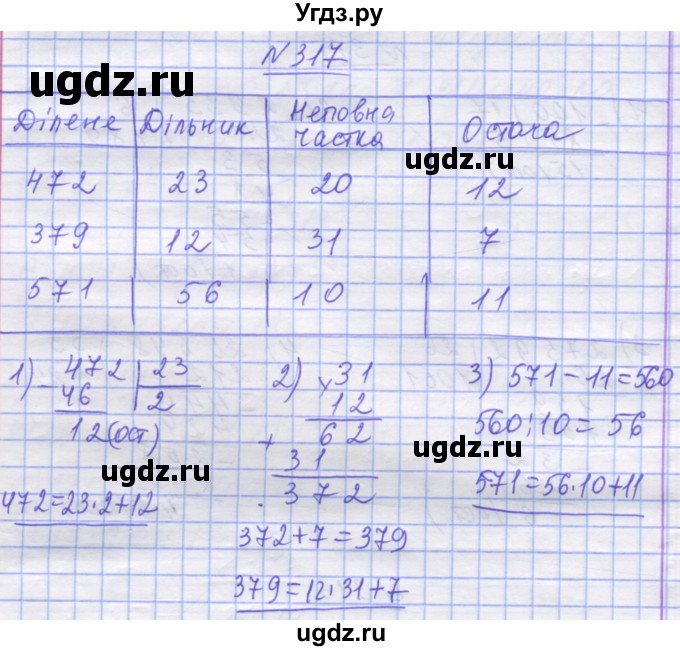 Угдз.ру
N 317
ugdz.ru
Ділене Дільник Неповна частка Остача
ugdz.ru
472 23 20 12
379 12 31 7
571 56 10 11
ugdz.ru
1) - 472 | 23
46 | 2
12(ост)
472=23·2+12
2) × 31
12
+ 62
31
372
372+7=379
379=12·31+7
3) 571-11=560
560:10=56
571=56·10+11
ugdz.ru
ugdz.ru
ugdz.ru